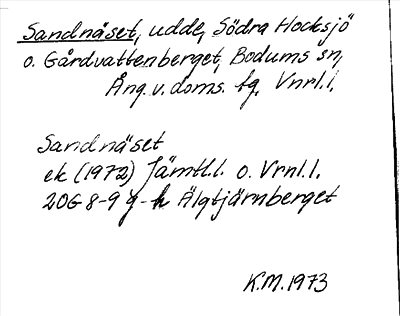 Sandnäset, udde, Södra Hocksjö
o. Gårdvattenberget, Bodums sn,
Ång. v. doms. fg. Vnrl.l.
Sandnäset
ek (1972) Jämtl.l. o. Vrnl.l.
20G 8-9 g-h Älgtjärnberget
K.M. 1973